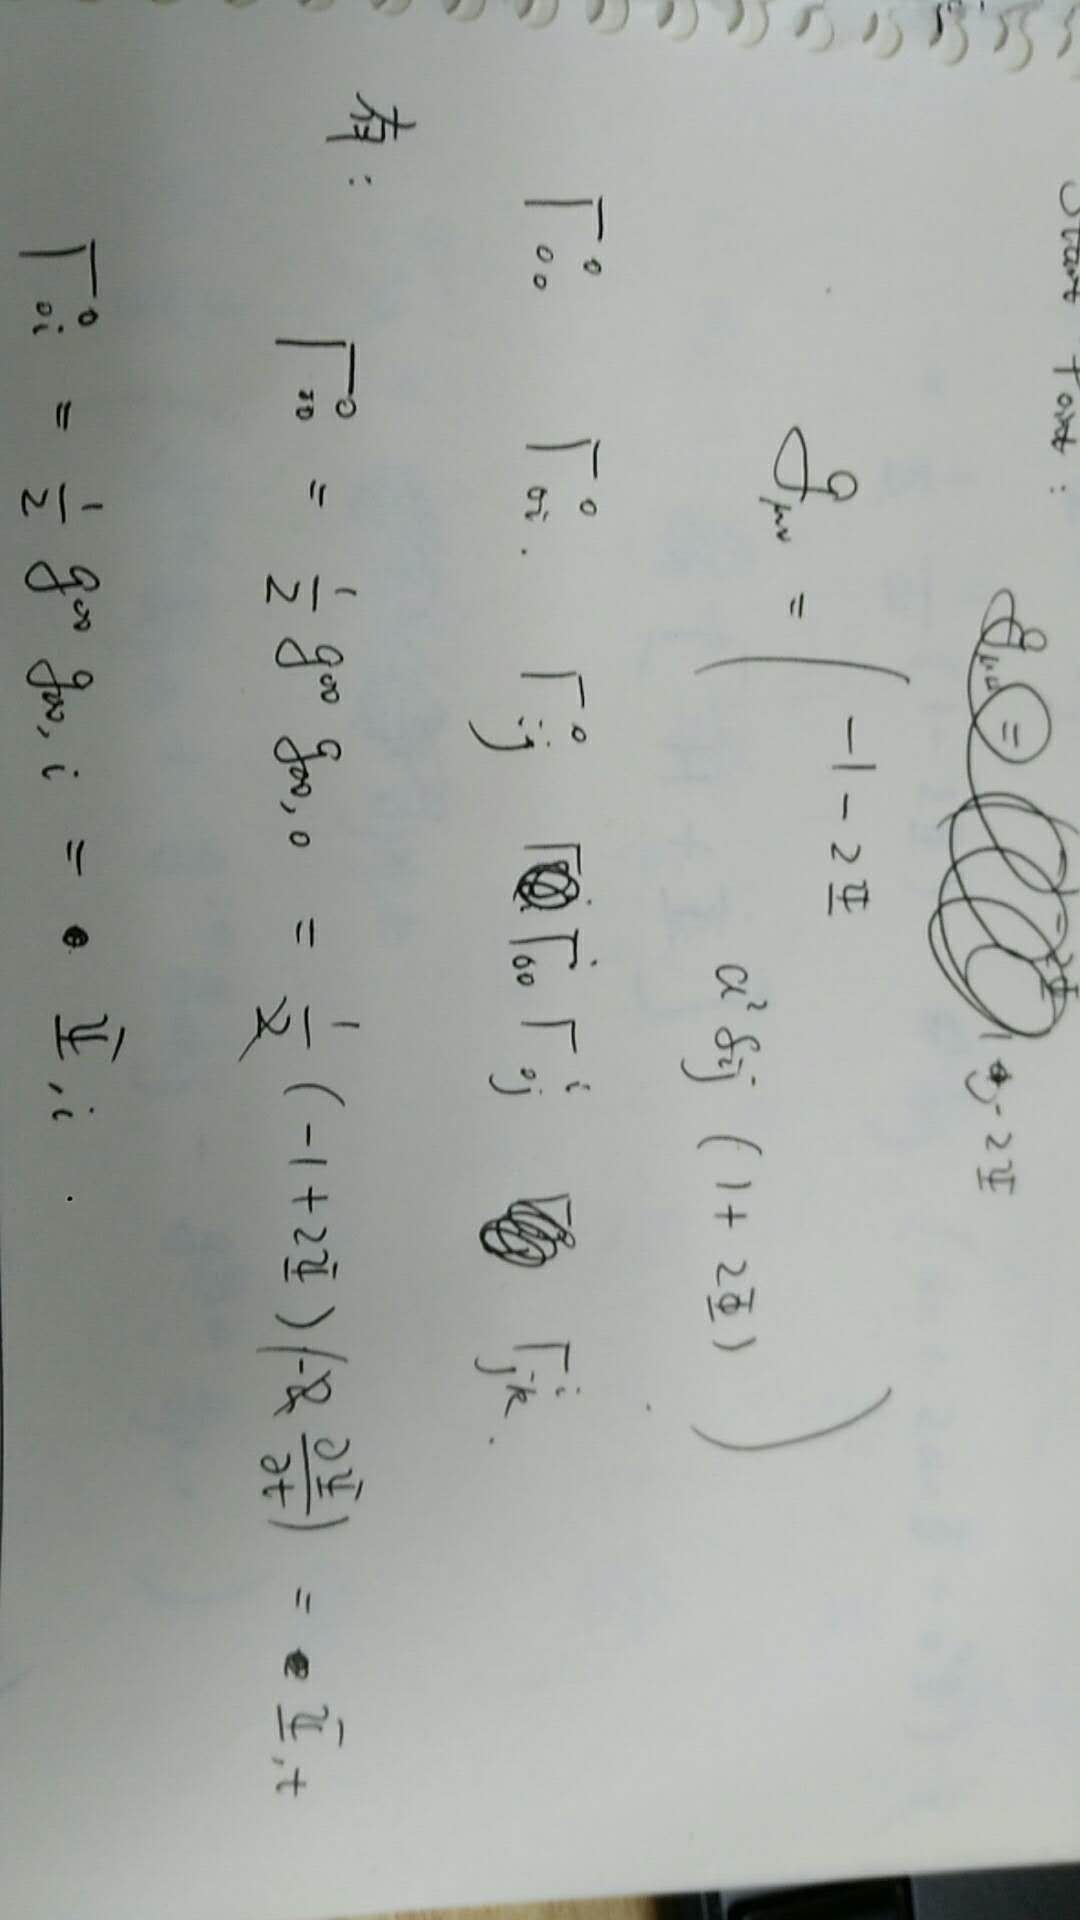 Start Point :
g_{μν} = -1-2Ψ
g_{μν} = ( -1-2Ψ
a² δ_{ij} (1+2Φ) )
Γ⁰₀₀ Γ⁰₀ᵢ . Γ⁰ᵢⱼ Γⁱ₀₀ Γⁱ₀ⱼ Γⁱⱼₖ .
有:
Γ⁰₀₀ = 1/2 g⁰⁰ g₀₀,₀ = 1/2 (-1+2Ψ) (-2 ∂Ψ/∂t) = Ψ,t
Γ⁰₀ᵢ = 1/2 g⁰⁰ g₀₀,i = Ψ,i .